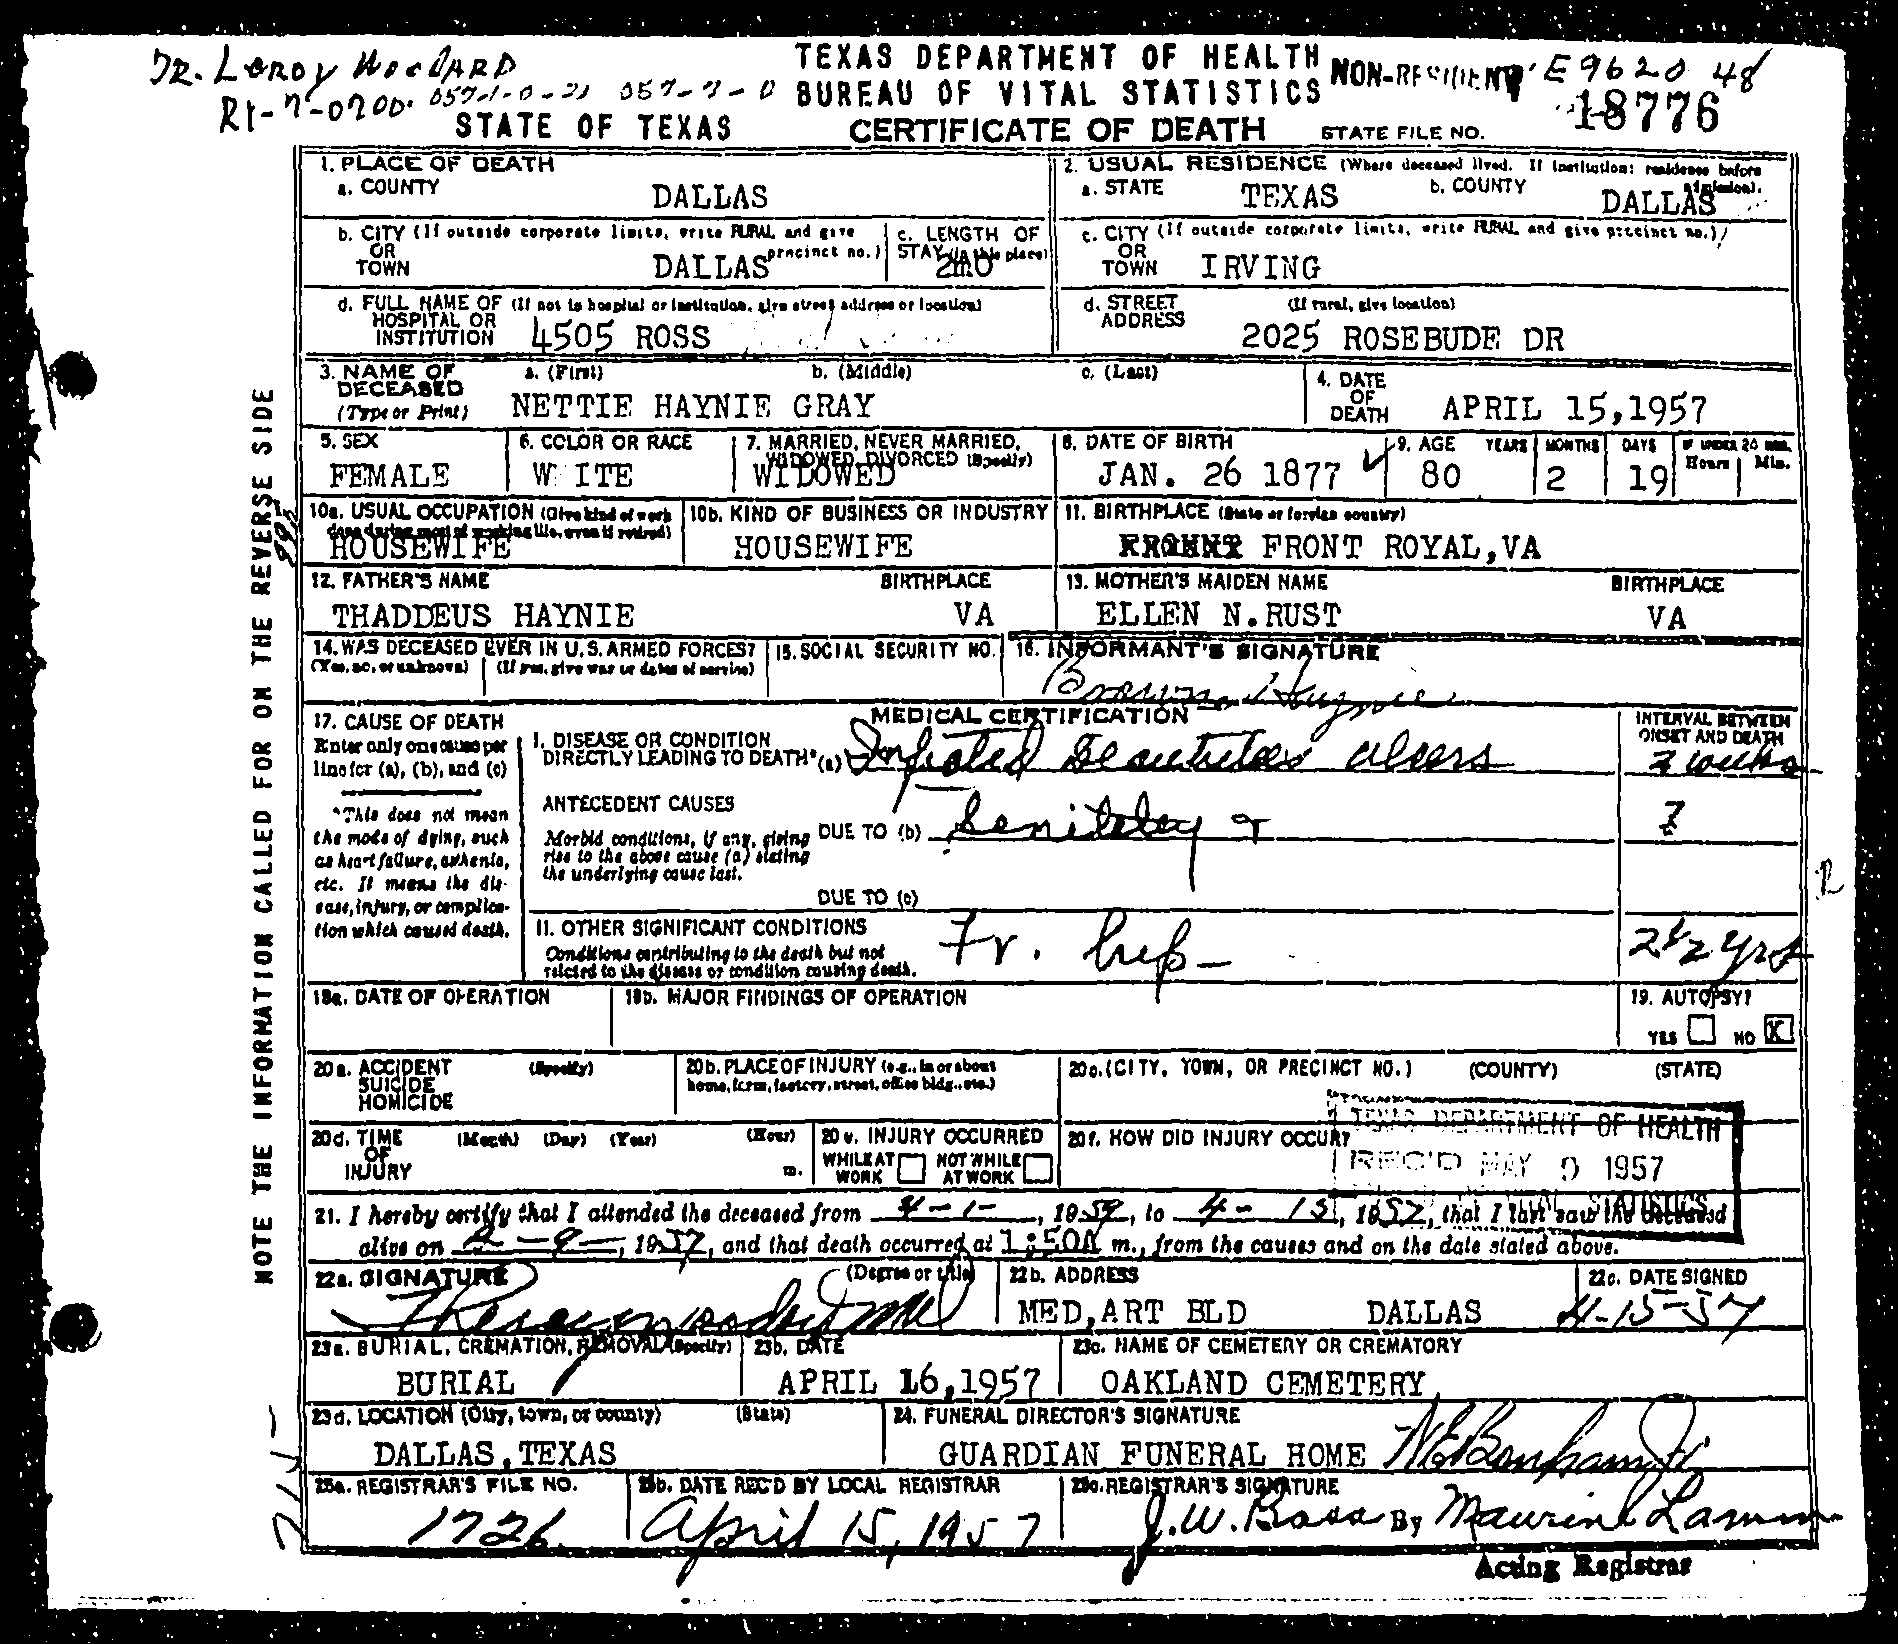 DR. LEROY WOODARD
TEXAS DEPARTMENT OF HEALTH
NON-RESIDENT E9620 48
R1-7-0700. 057-1-0-21 057-7-0
BUREAU OF VITAL STATISTICS
18776
STATE OF TEXAS CERTIFICATE OF DEATH STATE FILE NO.
1. PLACE OF DEATH
a. COUNTY DALLAS
2. USUAL RESIDENCE (Where deceased lived. If institution: residence before admission).
a. STATE TEXAS b. COUNTY DALLAS
b. CITY (If outside corporate limits, write RURAL and give precinct no.)
OR
TOWN DALLAS
c. LENGTH OF
STAY (in this place)
2mO
c. CITY (If outside corporate limits, write RURAL and give precinct no.)
OR
TOWN IRVING
d. FULL NAME OF (If not in hospital or institution, give street address or location)
HOSPITAL OR
INSTITUTION 4505 ROSS
d. STREET (If rural, give location)
ADDRESS
2025 ROSEBUDE DR
3. NAME OF a. (First) b. (Middle) c. (Last)
DECEASED
(Type or Print) NETTIE HAYNIE GRAY
4. DATE
OF
DEATH APRIL 15,1957
5. SEX
FEMALE
6. COLOR OR RACE
W ITE
7. MARRIED, NEVER MARRIED,
WIDOWED, DIVORCED (Specify)
WIDOWED
8. DATE OF BIRTH
JAN. 26 1877
9. AGE YEARS MONTHS DAYS IF UNDER 24 HRS.
Hours Min.
80 2 19
10a. USUAL OCCUPATION (Give kind of work
done during most of working life, even if retired)
HOUSEWIFE
10b. KIND OF BUSINESS OR INDUSTRY
HOUSEWIFE
11. BIRTHPLACE (State or foreign country)
FRONT ROYAL,VA
12. FATHER'S NAME BIRTHPLACE
THADDEUS HAYNIE VA
13. MOTHER'S MAIDEN NAME BIRTHPLACE
ELLEN N.RUST VA
14. WAS DECEASED EVER IN U.S. ARMED FORCES?
(Yes, no, or unknown) (If yes, give war or dates of service)
15. SOCIAL SECURITY NO.
16. INFORMANT'S SIGNATURE
Haynie
17. CAUSE OF DEATH
Enter only one cause per
line for (a), (b), and (c)
*This does not mean
the mode of dying, such
as heart failure, asthenia,
etc. It means the dis-
ease, injury, or complica-
tion which caused death.
MEDICAL CERTIFICATION
INTERVAL BETWEEN
ONSET AND DEATH
I. DISEASE OR CONDITION
DIRECTLY LEADING TO DEATH* (a) Infected decubitus ulcers
weeks
ANTECEDENT CAUSES
Morbid conditions, if any, giving
rise to the above cause (a) stating
the underlying cause last.
DUE TO (b) Senility
DUE TO (c)
II. OTHER SIGNIFICANT CONDITIONS
Conditions contributing to the death but not
related to the disease or condition causing death.
Fr. hip
2 1/2 yrs
18a. DATE OF OPERATION
18b. MAJOR FINDINGS OF OPERATION
19. AUTOPSY?
YES NO X
20a. ACCIDENT (Specify)
SUICIDE
HOMICIDE
20b. PLACE OF INJURY (e.g., in or about
home, farm, factory, street, office bldg., etc.)
20c. (CITY, TOWN, OR PRECINCT NO.) (COUNTY) (STATE)
20d. TIME (Month) (Day) (Year) (Hour)
OF
INJURY m.
20e. INJURY OCCURRED
WHILE AT WORK NOT WHILE AT WORK
20f. HOW DID INJURY OCCUR?
TEXAS DEPARTMENT OF HEALTH
REC'D MAY 9 1957
VITAL STATISTICS
21. I hereby certify that I attended the deceased from 4-1-, 19 , to 4-15, 1957, that I last saw the deceased
alive on -9-, 1957, and that death occurred at 1:50A m., from the causes and on the date stated above.
22a. SIGNATURE (Degree or title)
22b. ADDRESS
MED,ART BLD DALLAS
22c. DATE SIGNED
4-15-57
23a. BURIAL, CREMATION, REMOVAL (Specify)
BURIAL
23b. DATE
APRIL 16,1957
23c. NAME OF CEMETERY OR CREMATORY
OAKLAND CEMETERY
23d. LOCATION (City, town, or county) (State)
DALLAS,TEXAS
24. FUNERAL DIRECTOR'S SIGNATURE
GUARDIAN FUNERAL HOME
25a. REGISTRAR'S FILE NO.
1726
25b. DATE REC'D BY LOCAL REGISTRAR
April 15, 1957
25c. REGISTRAR'S SIGNATURE
J.W. Bass By Maurine Lamm
Acting Registrar
NOTE THE INFORMATION CALLED FOR ON THE REVERSE SIDE